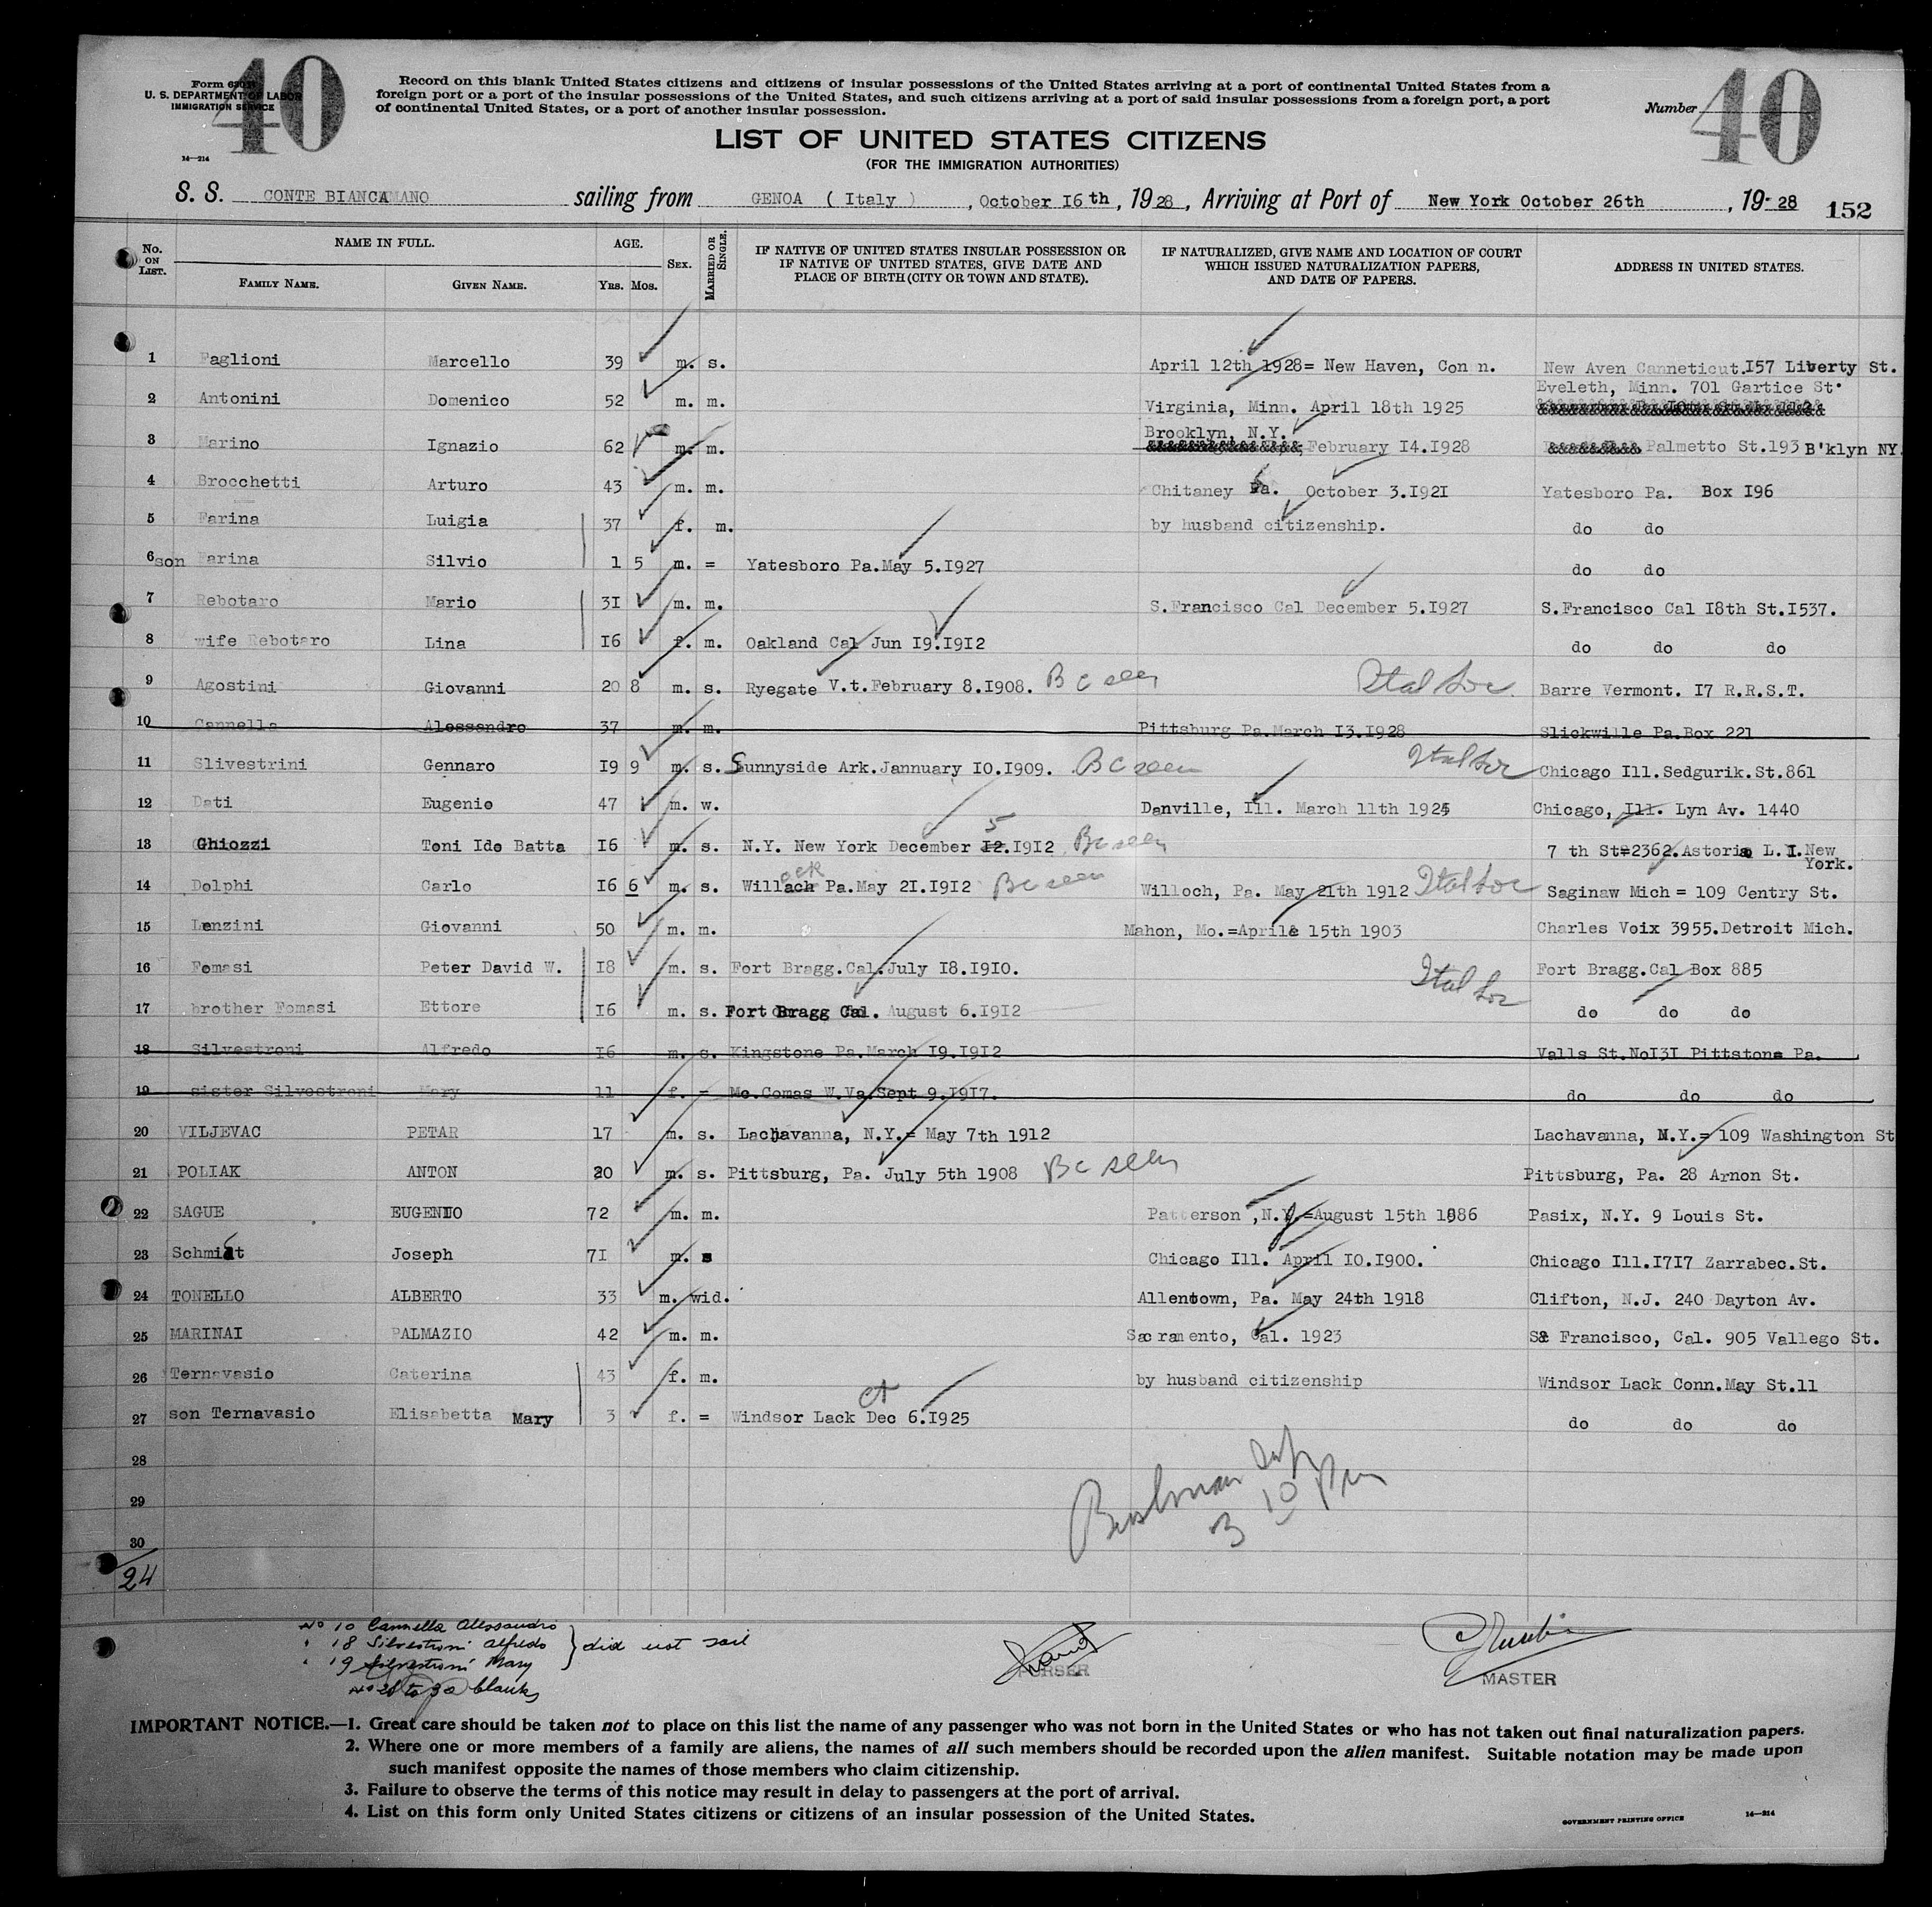 40
Form 630
U. S. DEPARTMENT OF LABOR
IMMIGRATION SERVICE
14—214
Record on this blank United States citizens and citizens of insular possessions of the United States arriving at a port of continental United States from a
foreign port or a port of the insular possessions of the United States, and such citizens arriving at a port of said insular possessions from a foreign port, a port
of continental United States, or a port of another insular possession.
Number
40
LIST OF UNITED STATES CITIZENS
(FOR THE IMMIGRATION AUTHORITIES)
S. S. CONTE BIANCAMANO sailing from GENOA ( Italy ) , October 16th , 1928 , Arriving at Port of New York October 26th , 19-28 152
No. ON LIST. NAME IN FULL. FAMILY NAME. GIVEN NAME. AGE. YRS. MOS. SEX. MARRIED OR SINGLE. IF NATIVE OF UNITED STATES INSULAR POSSESSION OR IF NATIVE OF UNITED STATES, GIVE DATE AND PLACE OF BIRTH (CITY OR TOWN AND STATE). IF NATURALIZED, GIVE NAME AND LOCATION OF COURT WHICH ISSUED NATURALIZATION PAPERS, AND DATE OF PAPERS. ADDRESS IN UNITED STATES.
1 Faglioni Marcello 39 m. s. April 12th 1928= New Haven, Con n. New Aven Canneticut.I57 Liberty St.
2 Antonini Domenico 52 m. m. Virginia, Minn. April 18th 1925 Eveleth, Minn. 701 Gartice St.
3 Marino Ignazio 62 m. m. Brooklyn, N.Y. February I4.I928 Palmetto St.I93 B'klyn NY.
4 Brocchetti Arturo 43 m. m. Chitaney Pa. October 3.I92I Yatesboro Pa. Box I96
5 Farina Luigia 37 f. m. by husband citizenship. do do
6 son Farina Silvio 1 5 m. = Yatesboro Pa.May 5.I927 do do
7 Rebotaro Mario 3I m. m. S.Francisco Cal December 5.I927 S.Francisco Cal I8th St.I537.
8 wife Rebotaro Lina I6 f. m. Oakland Cal Jun I9.I9I2 do do do
9 Agostini Giovanni 20 8 m. s. Ryegate V.t.February 8.I908. B C seen Ital Soc. Barre Vermont. I7 R.R.S.T.
10 Cannella Alessandro 37 m. m. Pittsburg Pa.March I3.I928 Slickwille Pa.Box 221
11 Slivestrini Gennaro I9 9 m. s. Sunnyside Ark.Jannuary IO.I909. BC seen Ital Soc Chicago Ill.Sedgurik.St.861
12 Dati Eugenio 47 m. w. Danville, Ill. March 11th 1924 Chicago, Ill. Lyn Av. 1440
13 Ghiozzi Toni Ido Batta I6 m. s. N.Y. New York December I2.I9I2 5 Bc seen 7 th St=2362.Astoria L.I.New York.
14 Dolphi Carlo I6 6 m. s. Willach ock Pa.May 2I.I9I2 Bc seen Willoch, Pa. May 21th 1912 Ital Soc Saginaw Mich = 109 Centry St.
15 Lenzini Giovanni 50 m. m. Mahon, Mo.=Aprile 15th 1903 Charles Voix 3955.Detroit Mich.
16 Fomasi Peter David W. I8 m. s. Fort Bragg.Cal.July I8.I9I0. Fort Bragg.Cal Box 885
Ital Soc
17 brother Fomasi Ettore I6 m. s. Fort Bragg Cal. August 6.I9I2 do do do
18 Silvestroni Alfredo I6 m. s. Kingstone Pa.March I9.I9I2 Valls St.NoI3I Pittstone Pa.
19 sister Silvestroni Mary 11 f. = Mc.Comas W.Va.Sept 9.I9I7. do do do
20 VILJEVAC PETAR 17 m. s. Lachavanna, N.Y.= May 7th 1912 Lachavanna, N.Y.= 109 Washington St
21 POLIAK ANTON 20 m. s. Pittsburg, Pa. July 5th 1908 Bc seen Pittsburg, Pa. 28 Arnon St.
22 SAGUE EUGENIO 72 m. m. Patterson ,N.Y.=August 15th 1886 Pasix, N.Y. 9 Louis St.
23 Schmidt Joseph 7I m. s Chicago Ill. April IO.I900. Chicago Ill.I7I7 Zarrabec.St.
24 TONELLO ALBERTO 33 m. wid. Allentown, Pa. May 24th 1918 Clifton, N.J. 240 Dayton Av.
25 MARINAI PALMAZIO 42 m. m. Sacramento, Cal. 1923 S. Francisco, Cal. 905 Vallego St.
26 Ternavasio Caterina 43 f. m. by husband citizenship Windsor Lack Conn.May St.11
27 son Ternavasio Elisabetta Mary 3 f. = Windsor Lack Dec 6.I925 ct do do do
28
29
30
24
3 10 Pm
No 10 Cannella Alessandro
" 18 Silvestroni Alfredo } did not sail
" 19 Silvestroni Mary
No 28 to 30 blanks
PURSER
MASTER
IMPORTANT NOTICE.—1. Great care should be taken not to place on this list the name of any passenger who was not born in the United States or who has not taken out final naturalization papers.
2. Where one or more members of a family are aliens, the names of all such members should be recorded upon the alien manifest. Suitable notation may be made upon
such manifest opposite the names of those members who claim citizenship.
3. Failure to observe the terms of this notice may result in delay to passengers at the port of arrival.
4. List on this form only United States citizens or citizens of an insular possession of the United States.
GOVERNMENT PRINTING OFFICE 14—214